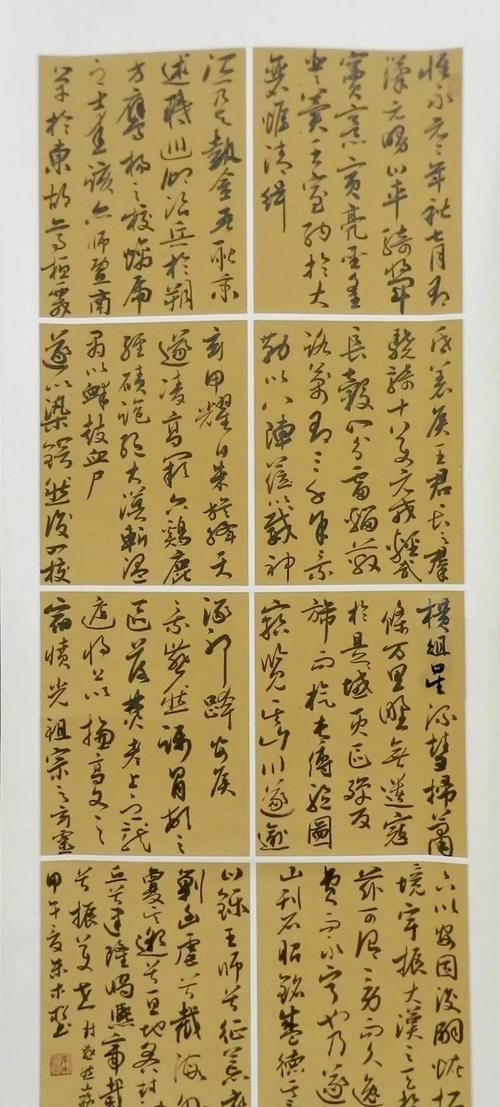 惟永元元年秋七月有
漢元舅曰車騎將軍
竇憲寅亮聖皇
登翼王室納於大
麓惟清緝
熙乃與執金吾耿秉
述職巡御治兵於朔
方鷹揚之校螭虎
之士爰該六師暨南
單於東胡烏桓西戎
氐羌侯王君長之群
驍騎十萬元戎輕武
長轂四分雷輜蔽
路萬有三千餘乘
勒以八陣蒞以威神
玄甲耀日朱旗絳天
遂凌高闕下雞鹿
經磧鹵絕大漠斬溫
禺以釁鼓血尸
逐以染鍔然後四校
橫徂星流彗掃蕭
條万里野無遺寇
於是域滅區殫反
旆而旋考傳驗圖
窮覽其山川遂逾
涿邪跨安侯
乘燕然躡冒頓之
區落焚老上之龍
庭將上以攄高文之
宿憤光祖宗之玄靈
下以安固後嗣恢拓
境宇振大漢之天
茲可謂一勞而久逸
暫費而永寧也乃遂
山刊石昭銘盛德其
曰鑠王師兮征荒裔
剿凶虐兮截海外
夐其邈兮亘地界封
丘兮建隆嵑熙帝載
兮振萬世 封燕然山銘
甲午夏朱木